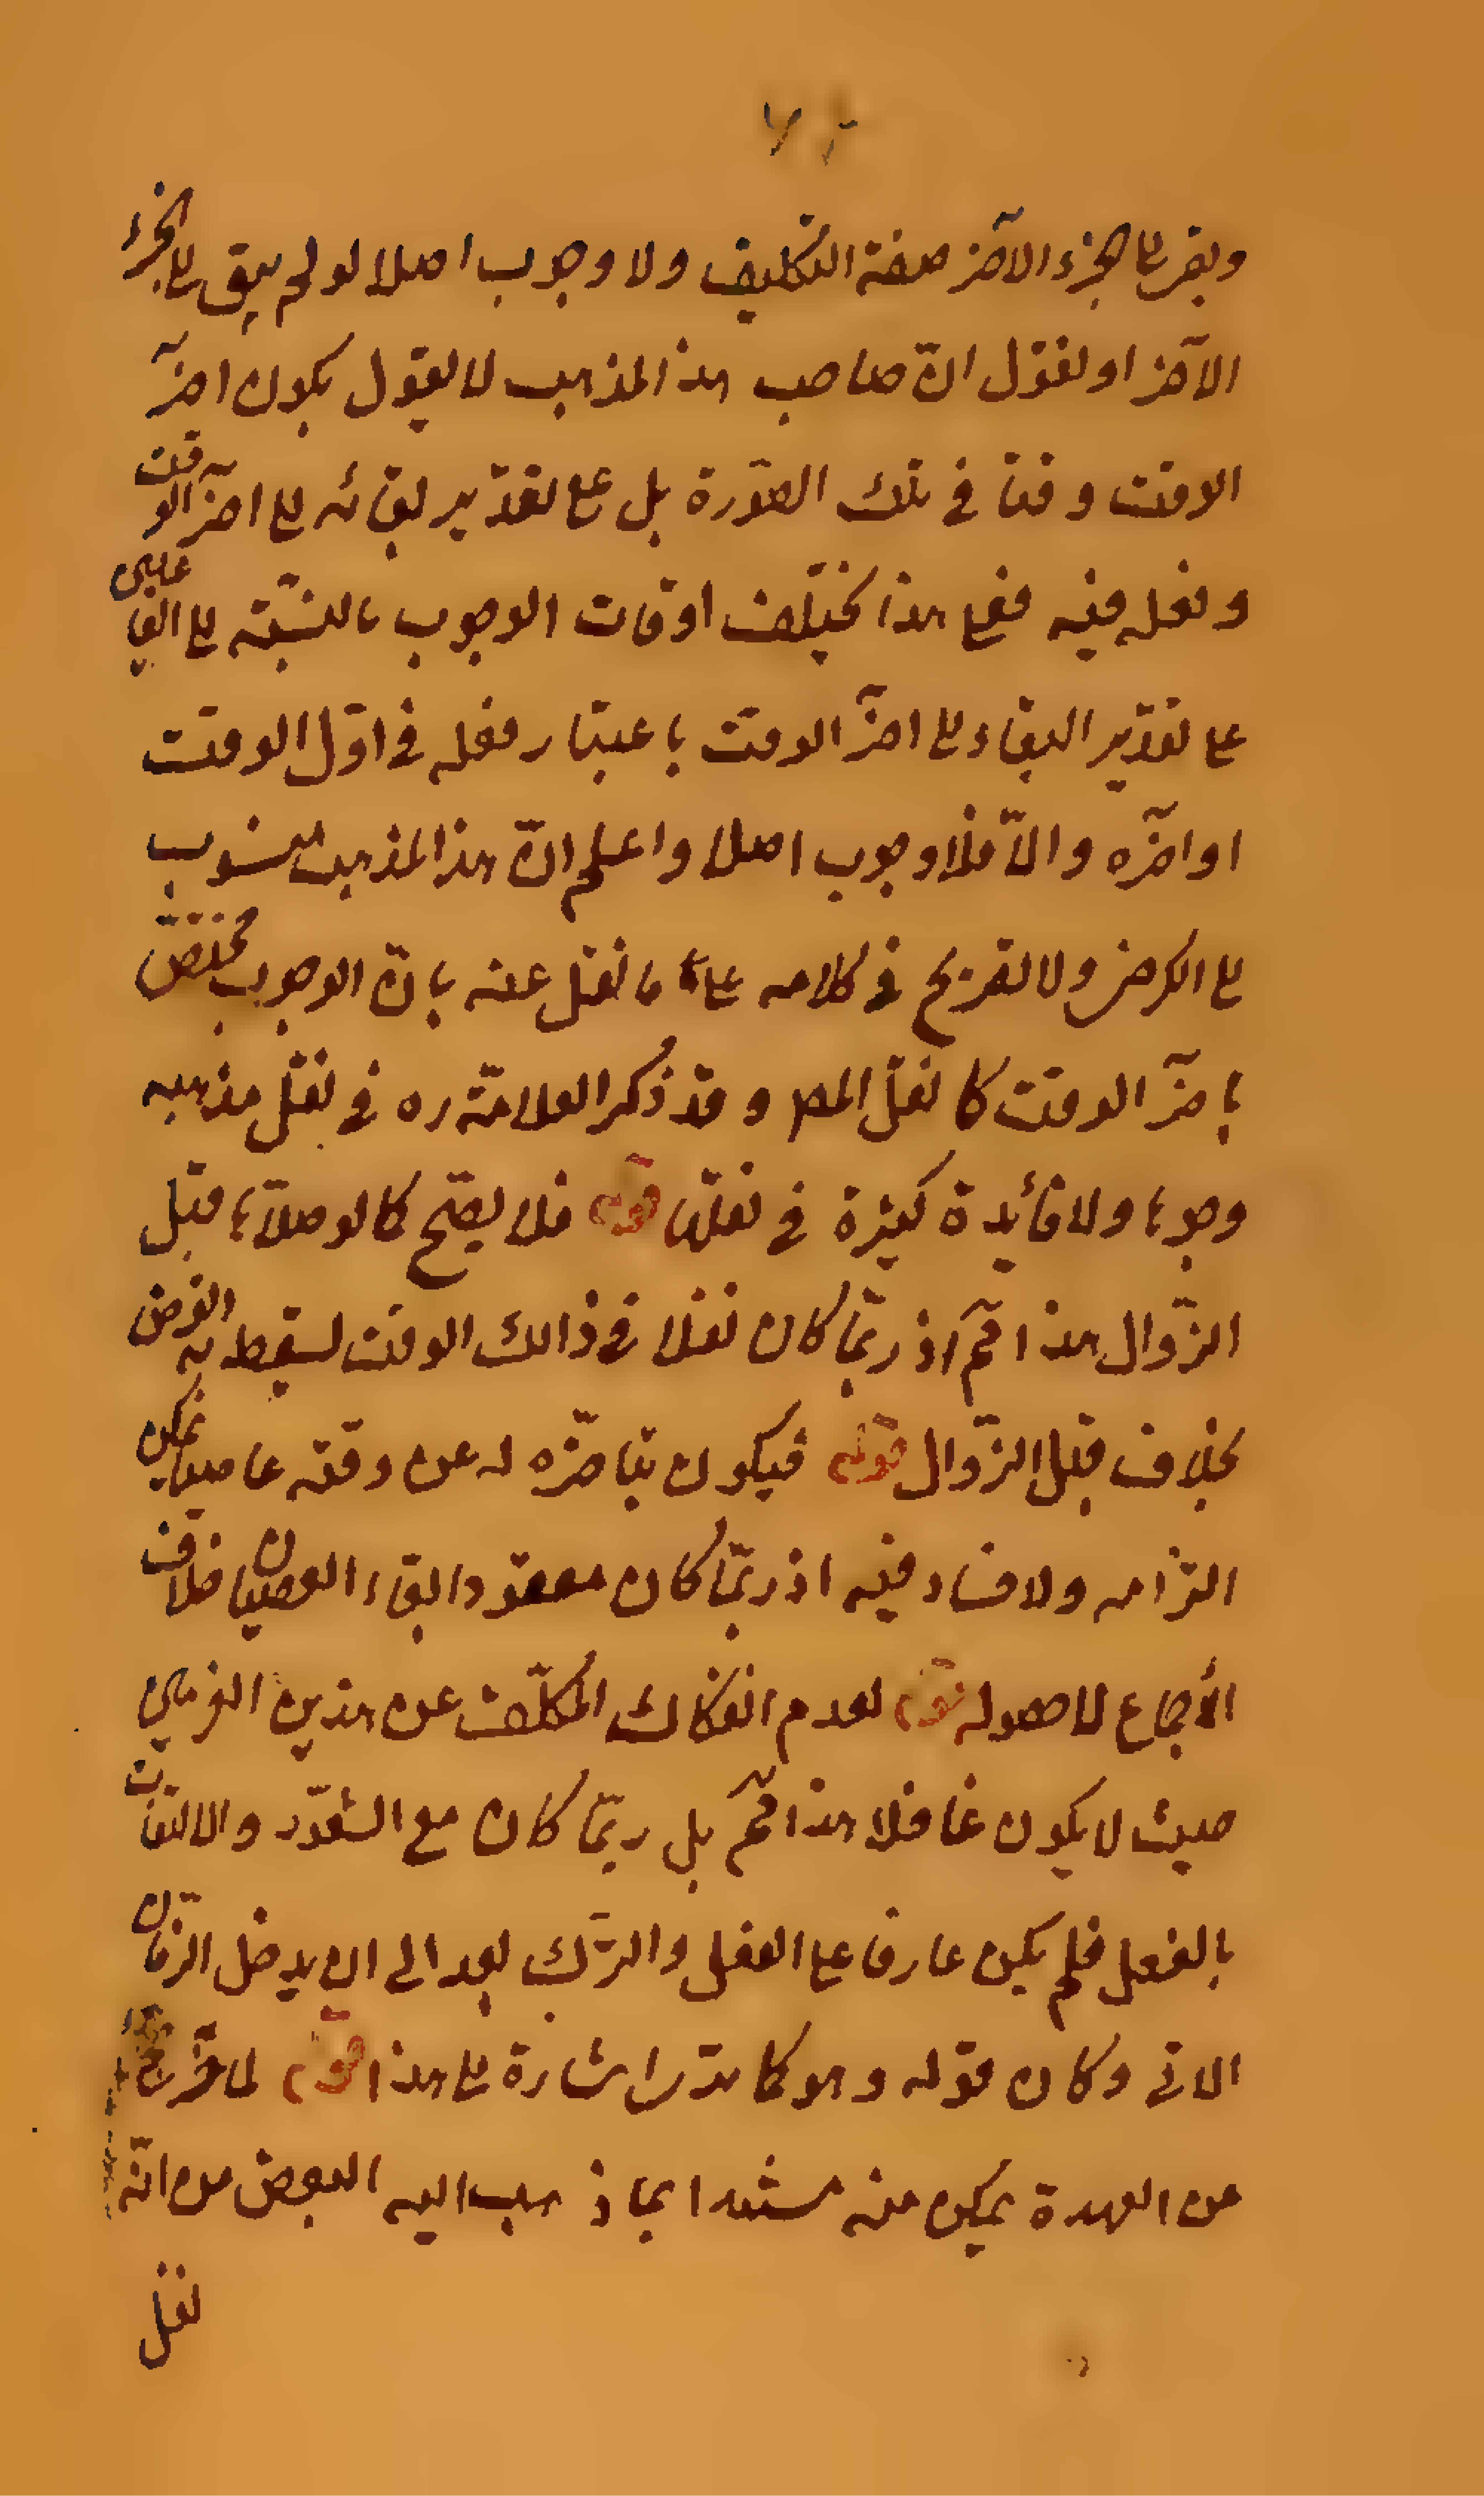 وبقى الى الجزء الآخر صفة التكليف ولا وجوب اصلا لو لم يبق الى الجزء
الآخر او نقول انّ صاحب هذا المذهب لا يقول بكون آخر
الوقت وقتا فى تلك الصّورة بل على تقدير بقائه الى آخر الوقت
وفعله فيه فعلى هذا يختلف اوقات الوجوب بالنسّبة الى الفاعلين
على تقدير البقاء الى آخر الوقت باعتبار فعله فى اوّل الوقت
او آخره والّا فلا وجوب اصلا واعلم انّ هذا المذهب منسوب
الى الكرخى ولا تصريح فى كلامه على ما نقل عنه بانّ الوجوب مختصّ
بآخر الوقت كما نقل المص وقد ذكر العلامة ره فى نقل مذهبه
وجوها ولا فائدة كثيرة فى نقلها قوله فلا يصحّ كما لو صلّاها قبل
الزّوال هذا مم اذ ربّما كان نفلا فى ذالك الوقت لسقط به الفرض
بخلاف قبل الزّوال قوله فيكون بتاخيره له عن وقته عاصيا يمكن
التزامه ولا فساد فيه اذ ربّما كان مقصوده ابقاء العصيان خلاف
الأجماع لا حصوله قوله لعدم انفكاك المكلّف عن هذين العزمين
حيث لا يكون غافلا هذا مم بل ربّما كان مع الشّعور والالتفات
بالفعل فلم يكن عازما على الفعل والترّك بعد الى ان يدخل الزمان
الاتى وكان قوله وهو كما تر اشارة الى هذا قوله لما خرج
من العهدة يمكن منعه مستندا بما ذهب اليه البعض من انّه
نفل